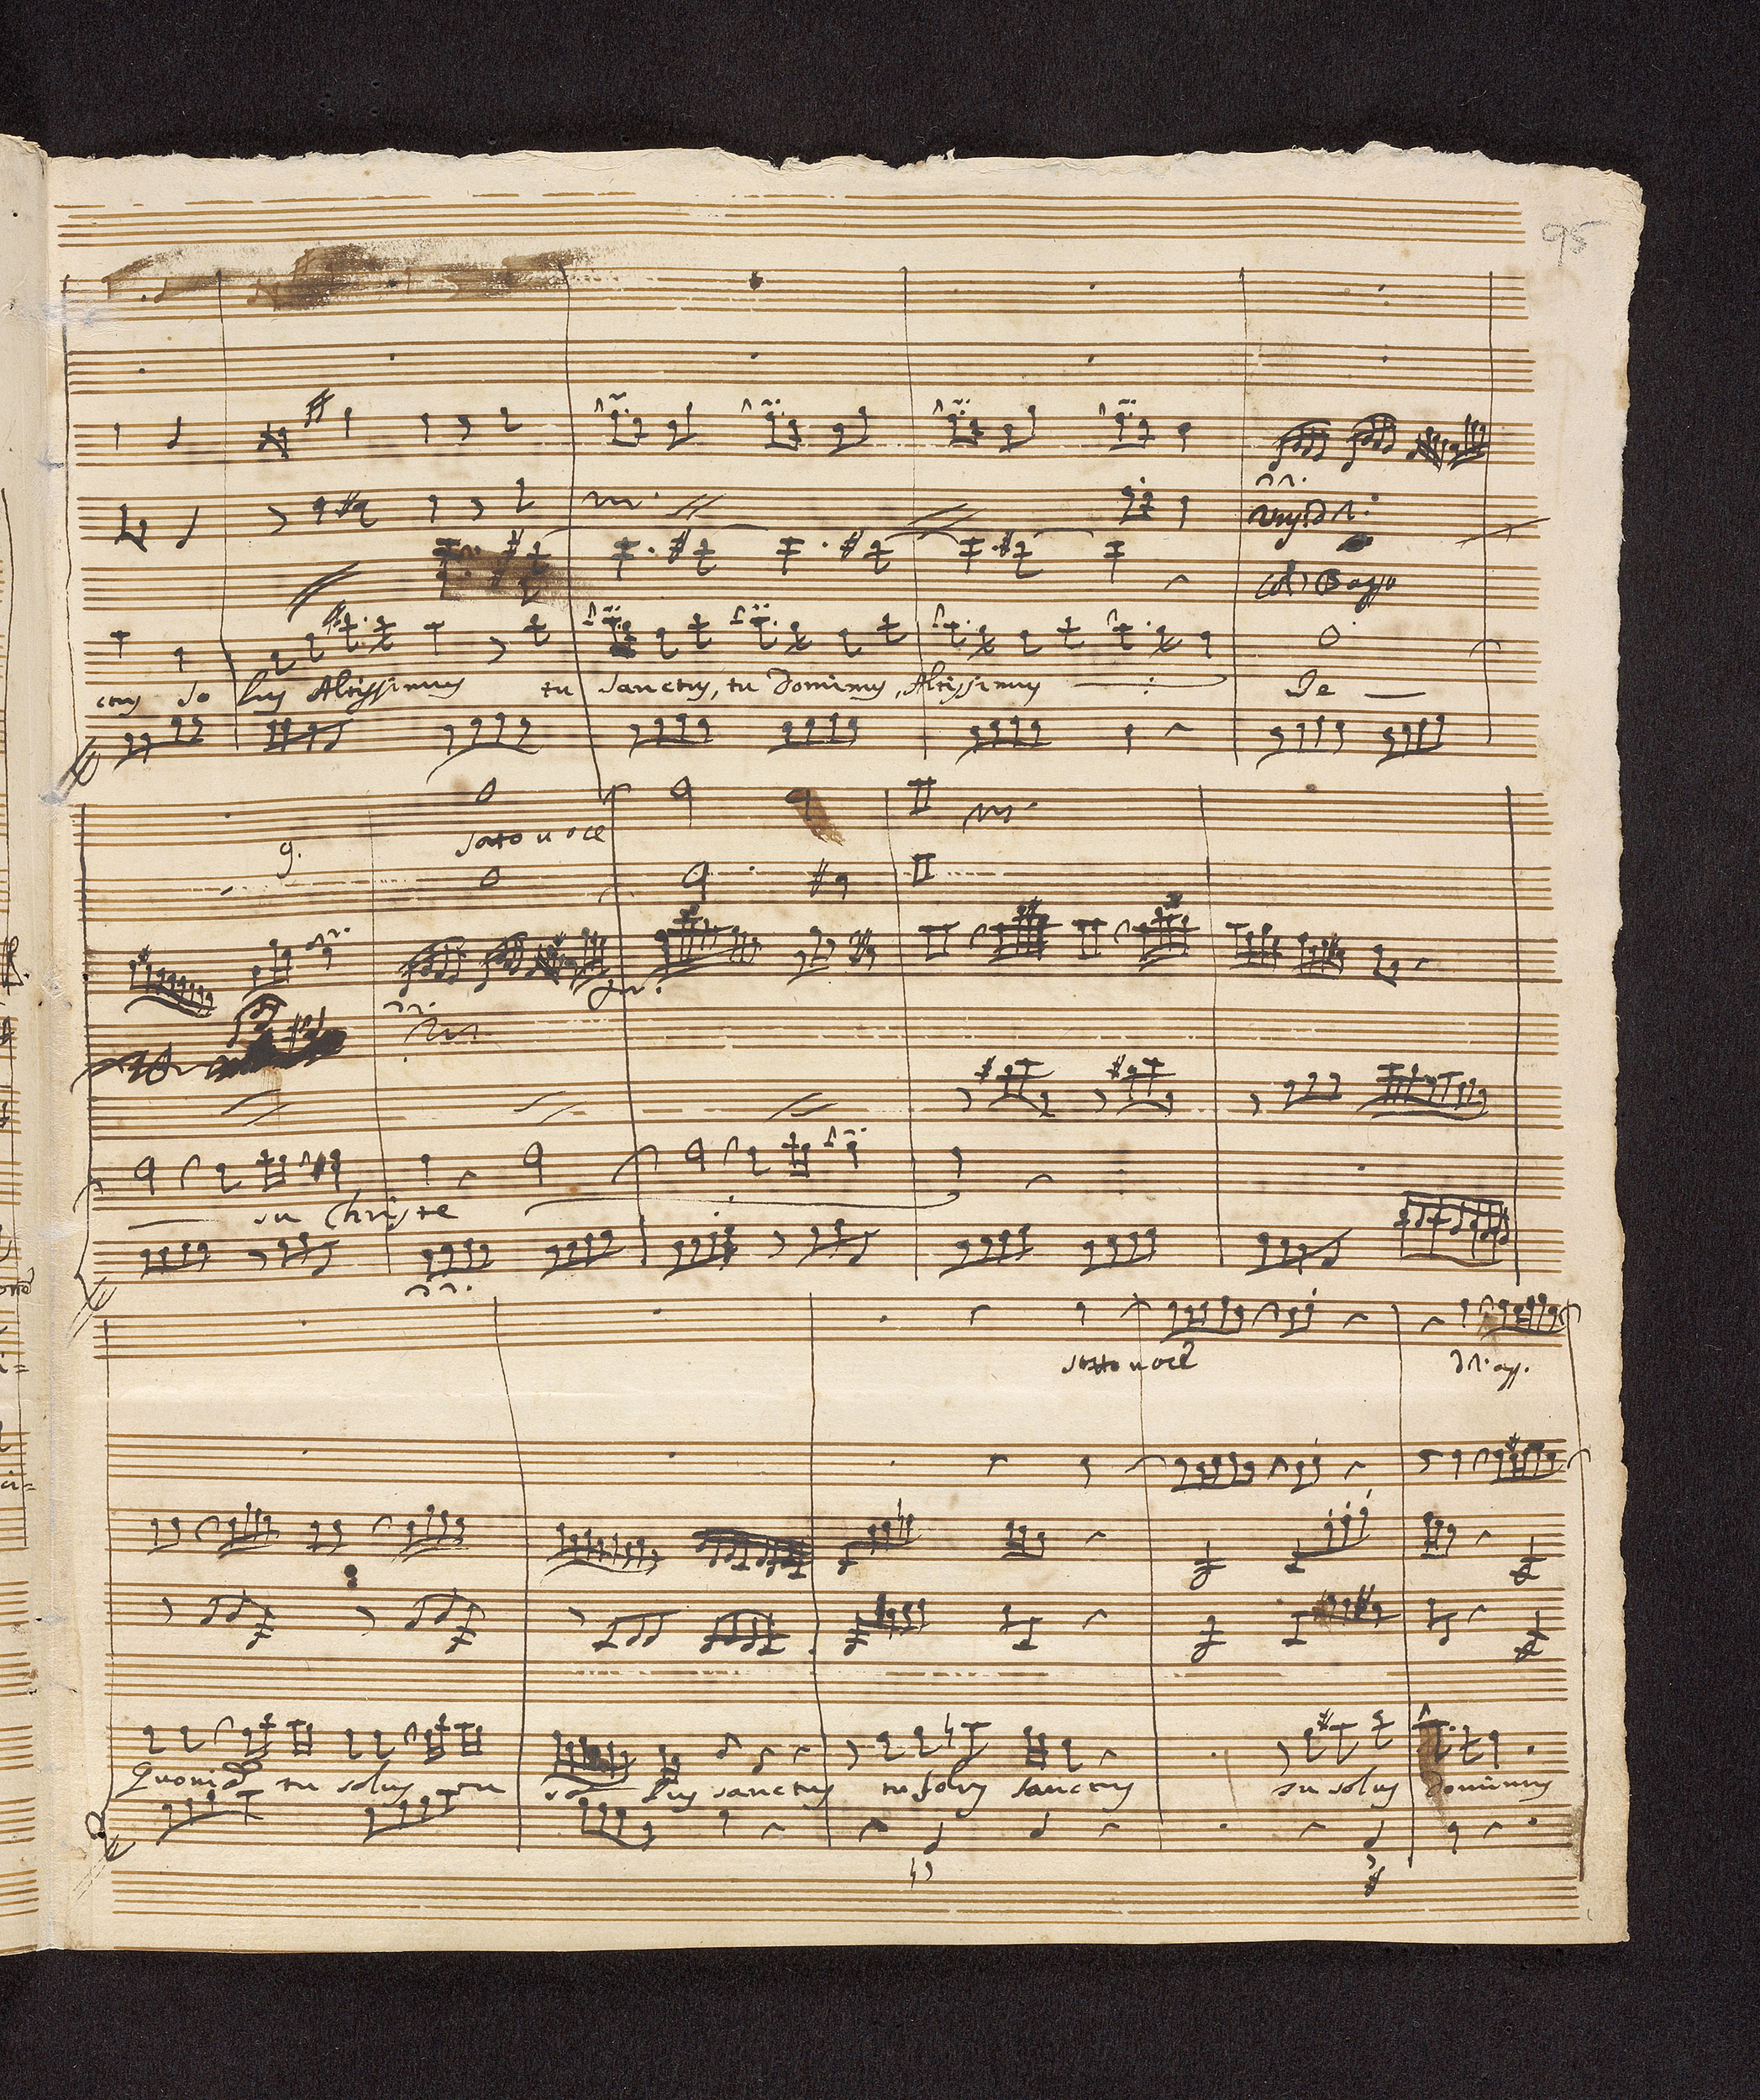 95
Col Basso
ctus so lus Altissimus tu sanctus, tu dominus, Altissimus Je
sotto voce
su Christe
sotto voce
Quoniã tu solus tu so lus sanctus tu solus sanctus tu solus dominus